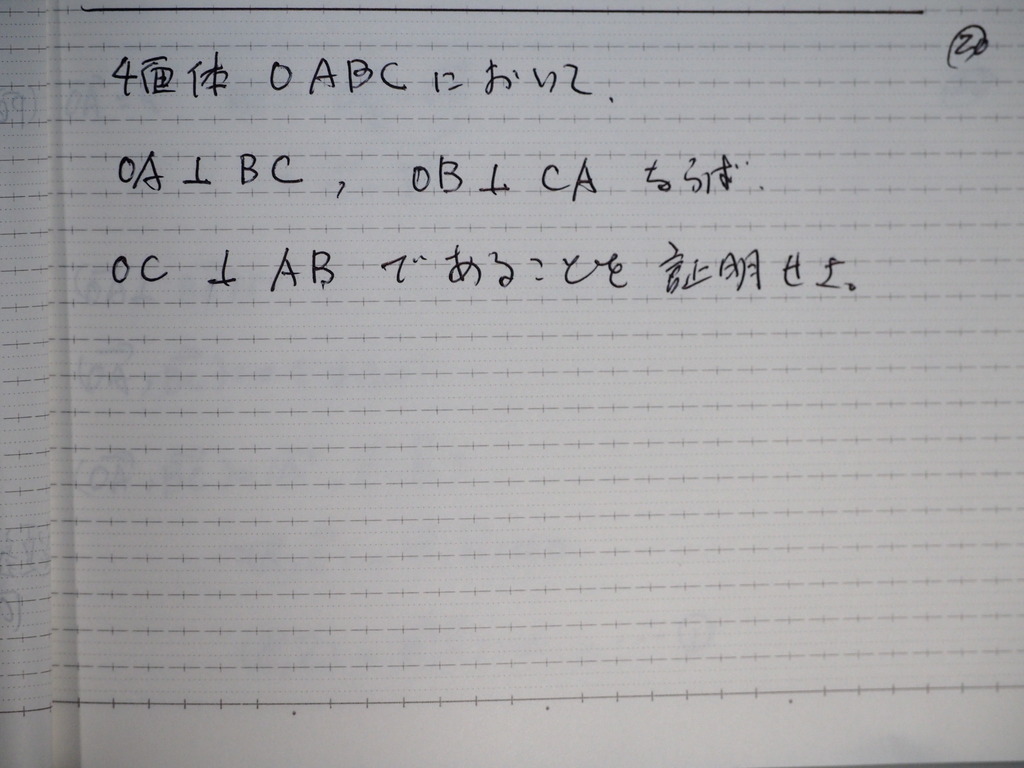 4面体 OABCにおいて,
OA⊥BC, OB⊥CA ならば.
OC ⊥ AB であることを証明せよ。